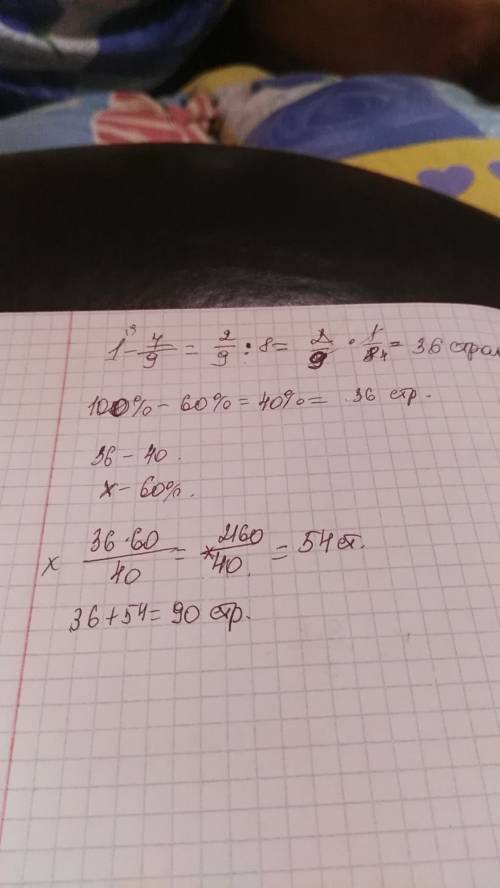 1 - 7/9 = 2/9 : 8 = 2/9 · 1/84 = 36 стран
100% - 60% = 40% = 36 стр.
36 - 40.
x - 60%.
x 36·60/40 = x 2160/40. = 54 ст.
36 + 54 = 90 стр.